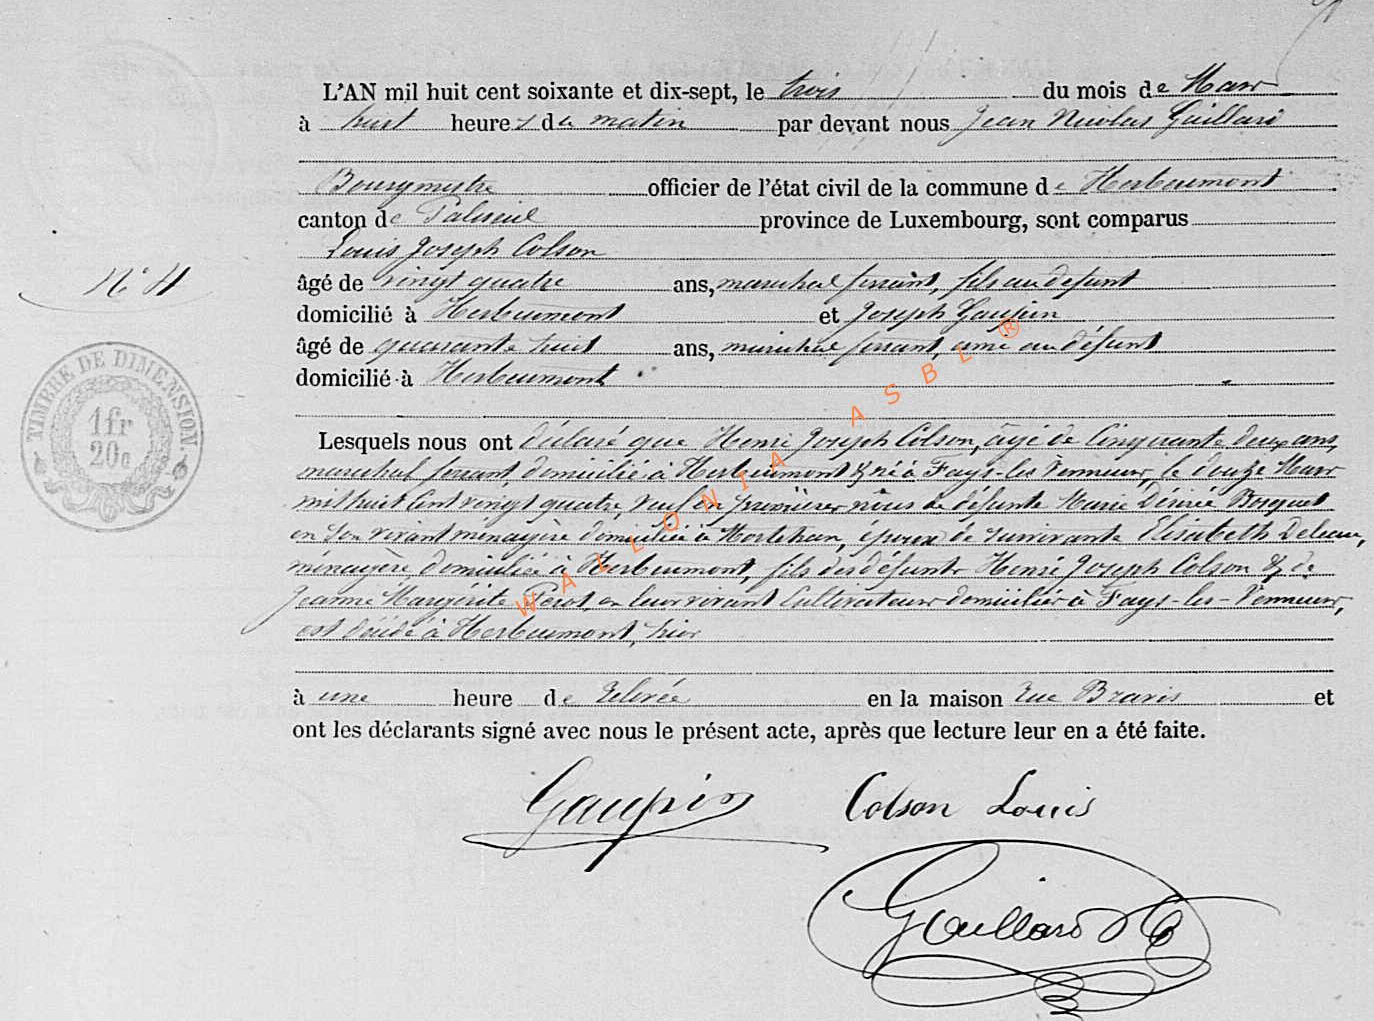 L'AN mil huit cent soixante et dix-sept, le trois du mois de Mars
à huit heures du matin par devant nous Jean Nicolas Gaillard
Bourgmestre officier de l'état civil de la commune de Herbeumont
canton de Paliseul province de Luxembourg, sont comparus
Louis Joseph Colson
âgé de vingt quatre ans, marechal ferrant, fils au défunt
N° 4
domicilié à Herbeumont et Joseph Gaupin
âgé de quarante huit ans, marechal ferrant, ami au défunt
domicilié à Herbeumont
TIMBRE DE DIMENSION
1fr
20c
Lesquels nous ont déclaré que Henri Joseph Colson, âgé de Cinquante deux ans,
marechal ferrant, domicilié à Herbeumont & né à Fays-les-Veneurs, le douze Mars
mil huit Cent vingt quatre, veuf en premières nôces de défunte Marie Désirée Bocquet
en son vivant ménagère domiciliée à Mortehan, époux de survivante Elisabeth
ménagère domiciliée à Herbeumont, fils des défunts Henri Joseph Colson & de
Jeanne Margerite Perot en leur vivant Cultivateurs domiciliés à Fays-les-Veneurs,
est décédé à Herbeumont, hier
à une heure de relevée en la maison rue Bravis et
ont les déclarants signé avec nous le présent acte, après que lecture leur en a été faite.
Gaupin Colson Louis
Gaillard
WALLONIA ASBL ®